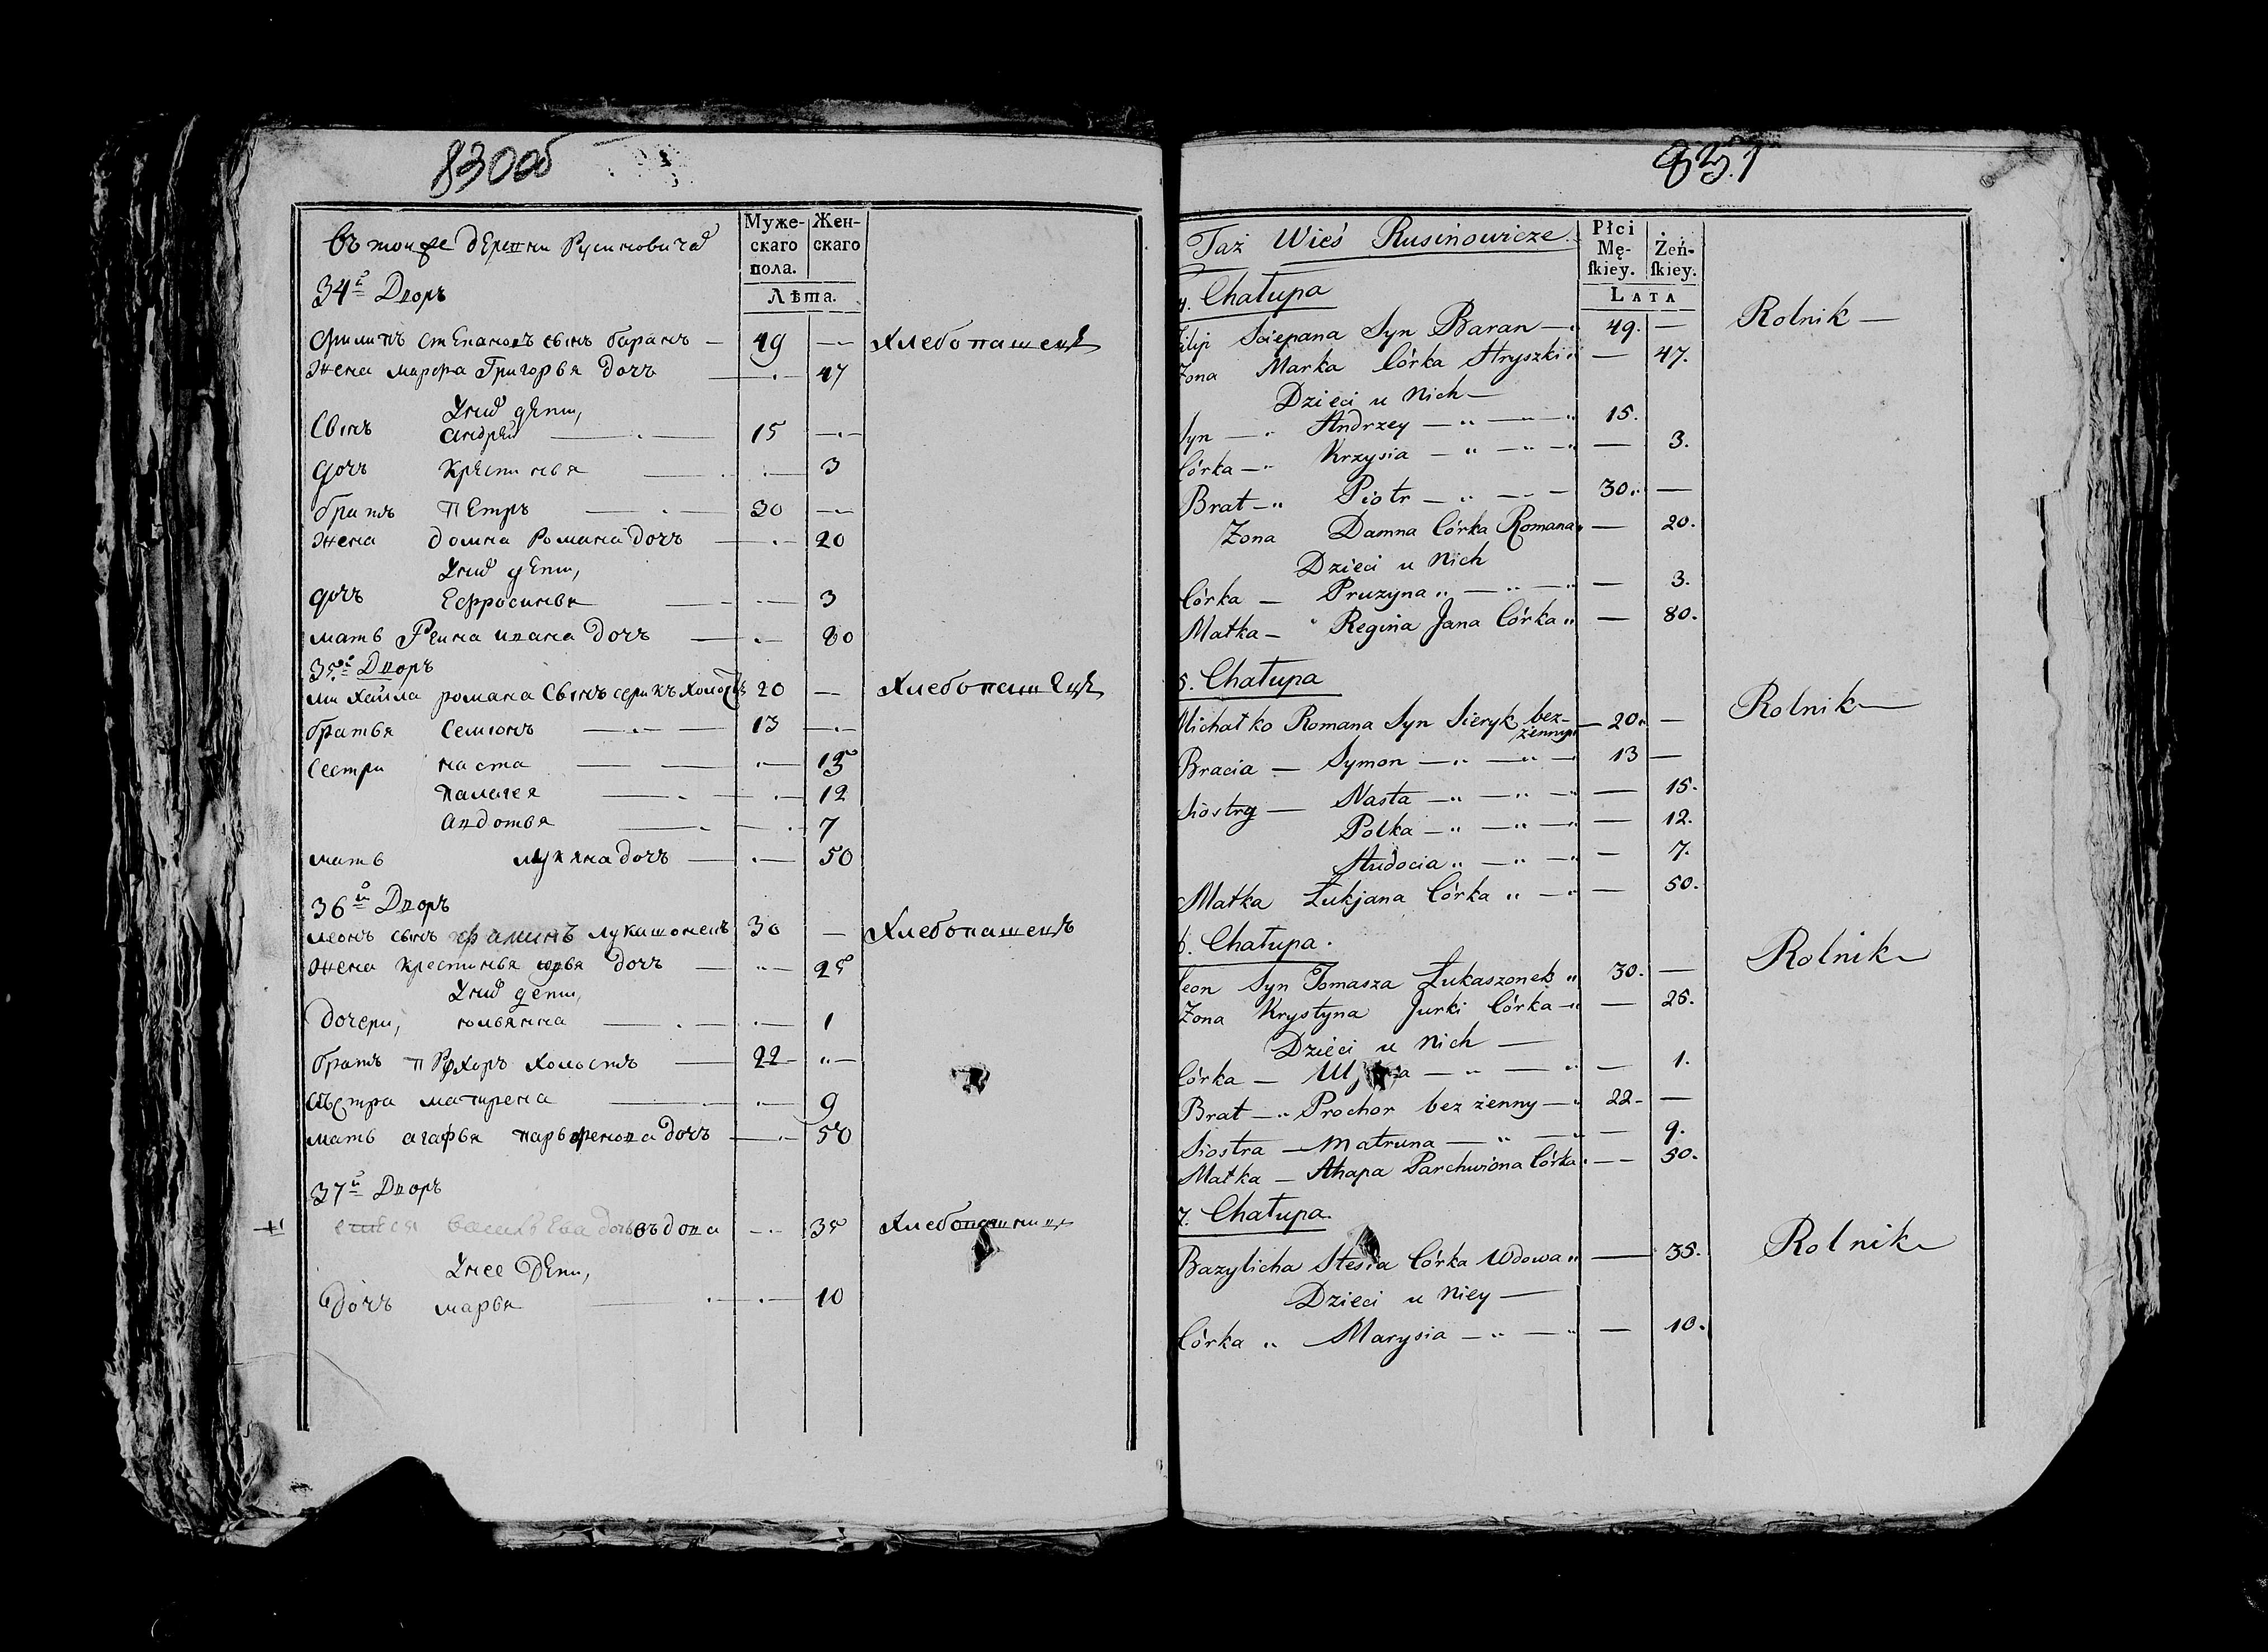 830об
Муже-
скаго
пола.
Жен-
скаго
Лѣта.
въ тойже деревни Русиновичах
34й Дворъ
Филипъ Степановъ сынъ баранъ — 49 — Хлебопашецъ
Жена марфа Григорья дочъ — 47
Унихъ дети,
Сынъ андрей — 15 —
дочъ Крестинья — 3
братъ Петръ — 30 —
жена домна Романа дочъ — 20
Унихъ дети,
дочъ Ефросинья — 3
мать Реина ивана дочъ — 80
35й Дворъ
михайла романа Сынъ серикъ холостъ 20 — Хлебопашецъ
братья Семионъ — 13 —
Сестри наста — 15
Палагея — 12
авдотья — 7
мать лукяна дочъ — 50
36й Дворъ
леонъ сынъ фаминъ лукашонекъ 30 — Хлебопашецъ
жена крестинья юрья дочъ — 25
Унихъ дети,
дочери, юльянна — 1
братъ Прохоръ холостъ — 22 —
сестра матирена — 9
мать агафья парьфенова дочъ — 50
37й Дворъ
дочъ въдова — 35 Хлебопашница
Унее Дети,
дочъ марья — 10
831
Płci
Mę-
skiey.
Żeń-
skiey.
Lata
Taż Wieś Rusinowicze.
4. Chałupa
Filip Sciepana Syn Baran — 49. — Rolnik —
Zona Marka Córka Hryszki — 47.
Dzieci u Nich —
Syn — Andrzey — 15.
Córka — Krzysia — 3.
Brat — Piotr — 30. —
Zona Damna Córka Romana — 20.
Dzieci u Nich
Córka — Pruzyna — 3.
Matka — Regina Jana Córka — 80.
5. Chałupa
Michałko Romana Syn Sieryk bez-żenny — 20. — Rolnik —
Bracia — Symon — 13 —
Siostry — Nasta — 15.
Polka — 12.
Audocia — 7.
Matka Łukjana Córka — 50.
6. Chałupa.
Leon Syn Tomasza Łukaszonek 30. — Rolnik
Zona Krystyna Jurki Córka — 25.
Dzieci u Nich —
Córka — 1.
Brat — Prochor bez żenny — 22 —
Siostra — Matruna — 9.
Matka — Ahapa Parchwiona Córka — 50.
7. Chałupa.
Bazylicha Stesia Córka Wdowa — 35. Rolnik
Dzieci u Niey —
Córka Marysia — 10.